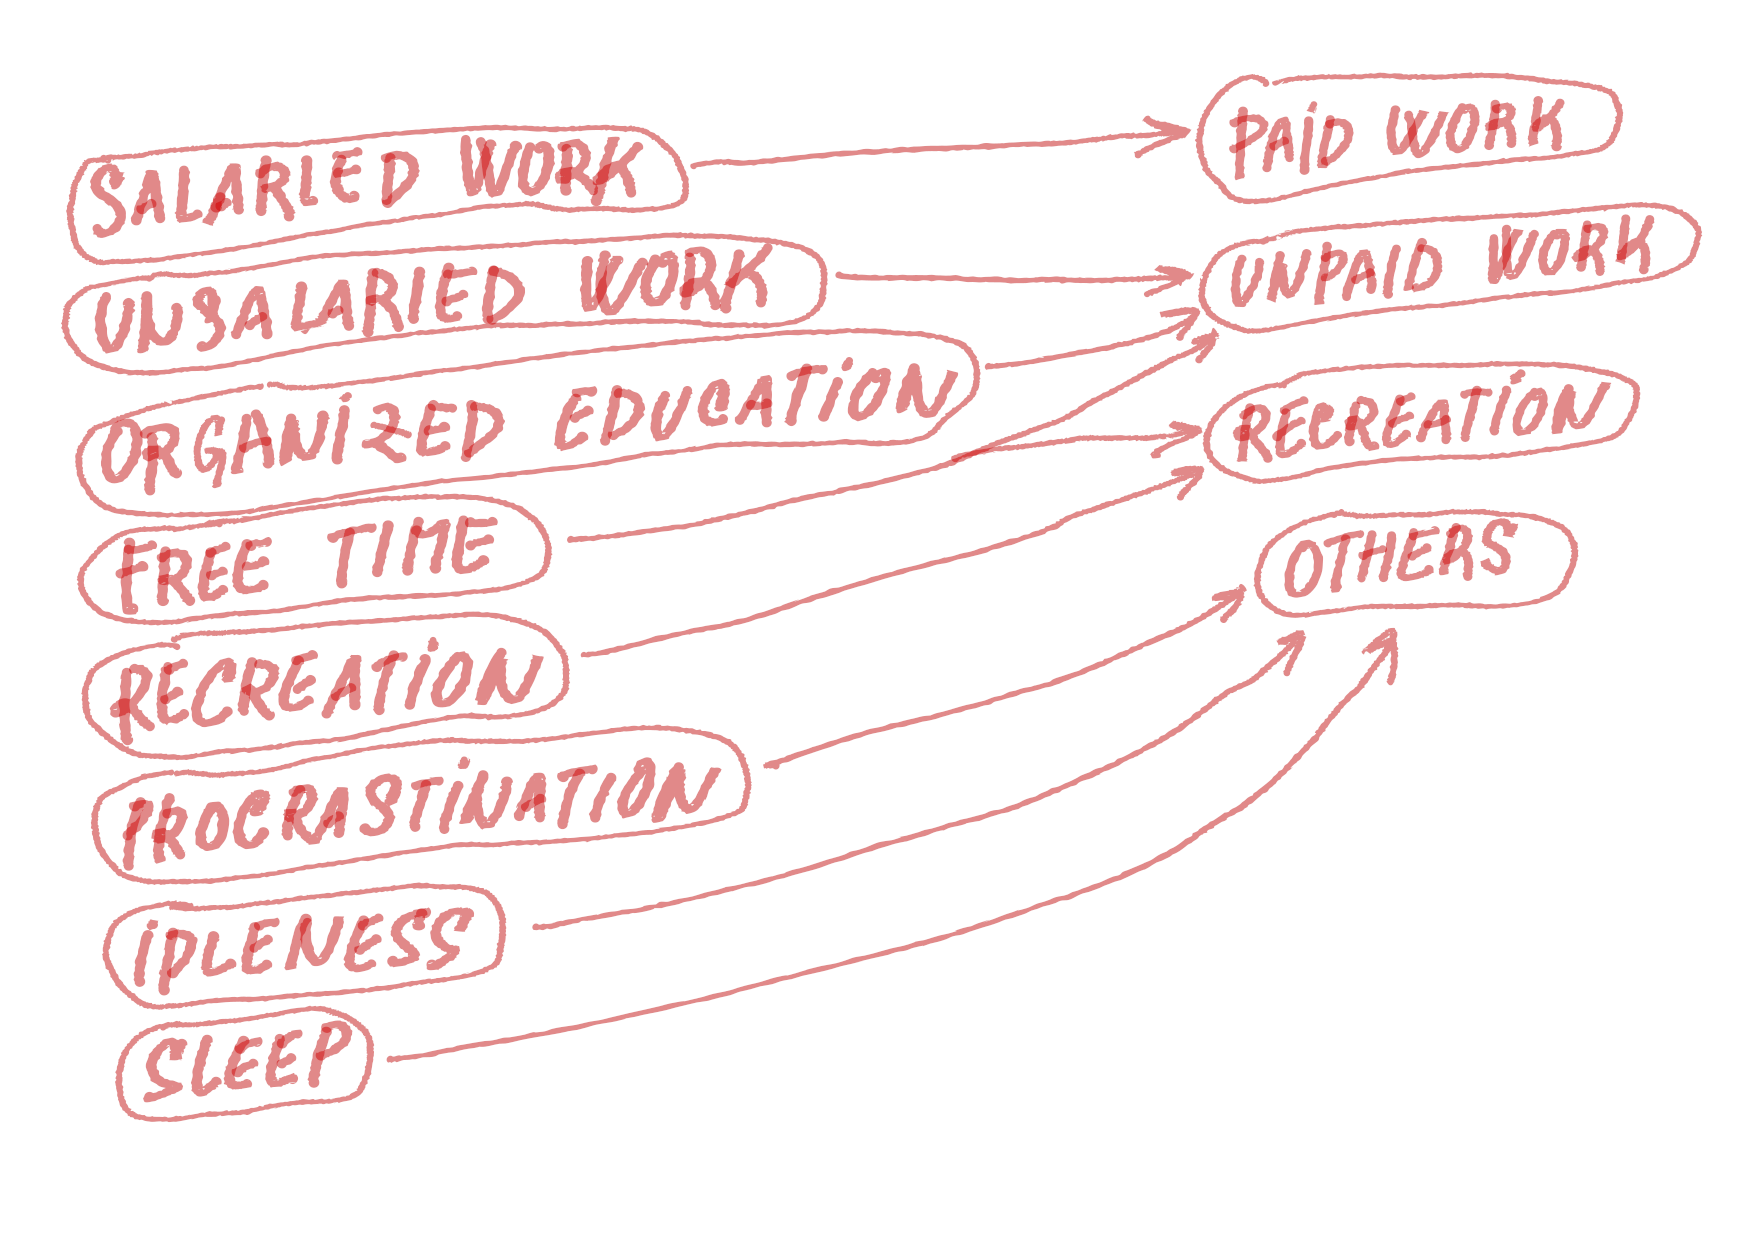 SALARIED WORK
UNSALARIED WORK
ORGANIZED EDUCATION
FREE TIME
RECREATION
PROCRASTINATION
IDLENESS
SLEEP
PAID WORK
UNPAID WORK
RECREATION
OTHERS